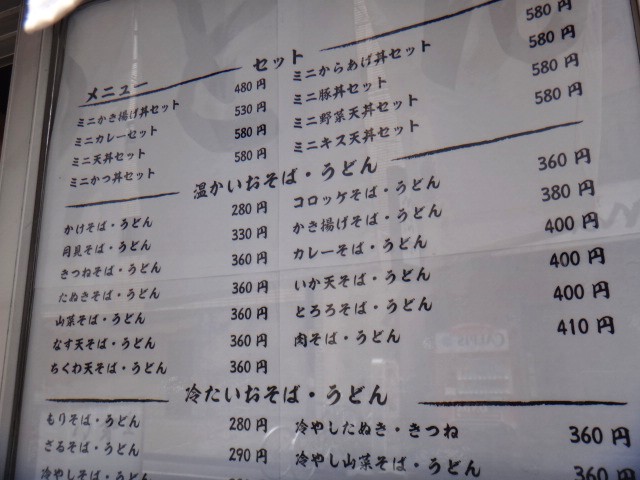 メニュー
セット
ミニかき揚げ丼セット 480円
ミニカレーセット 530円
ミニ天丼セット 580円
ミニかつ丼セット 580円
ミニからあげ丼セット 580円
ミニ豚丼セット 580円
ミニ野菜天丼セット 580円
ミニキス天丼セット 580円
温かいおそば・うどん
かけそば・うどん 280円
月見そば・うどん 330円
きつねそば・うどん 360円
たぬきそば・うどん 360円
山菜そば・うどん 360円
なす天そば・うどん 360円
ちくわ天そば・うどん 360円
コロッケそば・うどん 360円
かき揚げそば・うどん 380円
カレーそば・うどん 400円
いか天そば・うどん 400円
とろろそば・うどん 400円
肉そば・うどん 410円
冷たいおそば・うどん
もりそば・うどん 280円
ざるそば・うどん 290円
冷やしそば・うどん
冷やしたぬき・きつね 360円
冷やし山菜そば・うどん 360円